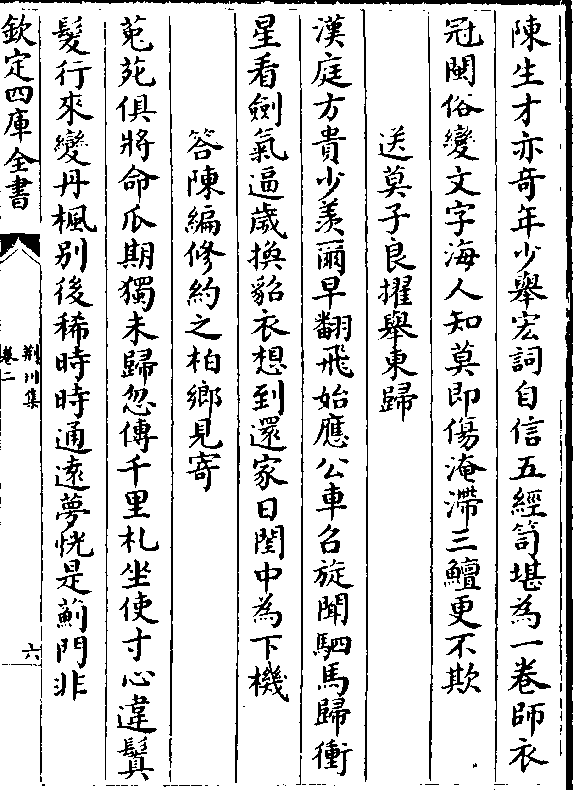 陳生才亦竒年少舉宏詞自信五經笥堪為一卷師衣
冠閩俗變文字海人知莫即傷淹滯三鱣更不欺
送莫子良擢舉東歸
漢庭方貴少羡爾早翻飛始應公車召旋聞駟馬歸衝
星看劍氣逼歲換貂衣想到還家日閨中為下機
答陳編修約之柏鄉見寄
莵苑俱將命瓜期獨未歸忽傳千里札坐使寸心違鬂
髮行來變丹楓别後稀時時通逺夢恍是薊門非
欽定四庫全書
荆川集
卷二
六